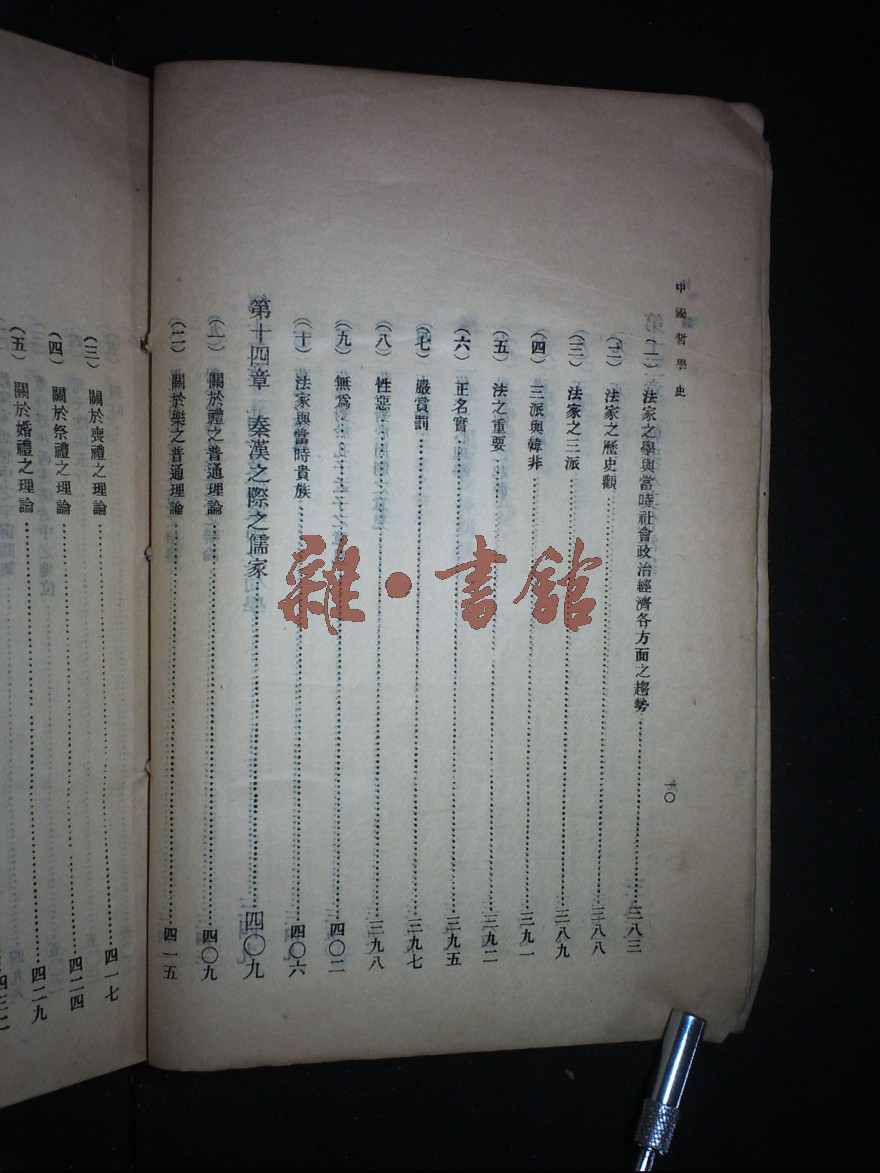 中國哲學史
一〇
（一）法家之學與當時社會政治經濟各方面之趨勢……三八三
（二）法家之歷史觀……三八八
（三）法家之三派……三八九
（四）三派與韓非……三九一
（五）法之重要……三九二
（六）正名實……三九五
（七）嚴賞罰……三九七
（八）性惡……三九八
（九）無為……四〇二
（十）法家與當時貴族……四〇六
第十四章 秦漢之際之儒家……四〇九
（一）關於禮之普通理論……四〇九
（二）關於樂之普通理論……四一五
（三）關於喪禮之理論……四一七
（四）關於祭禮之理論……四二四
（五）關於婚禮之理論……四二九
四三二
雜·書館